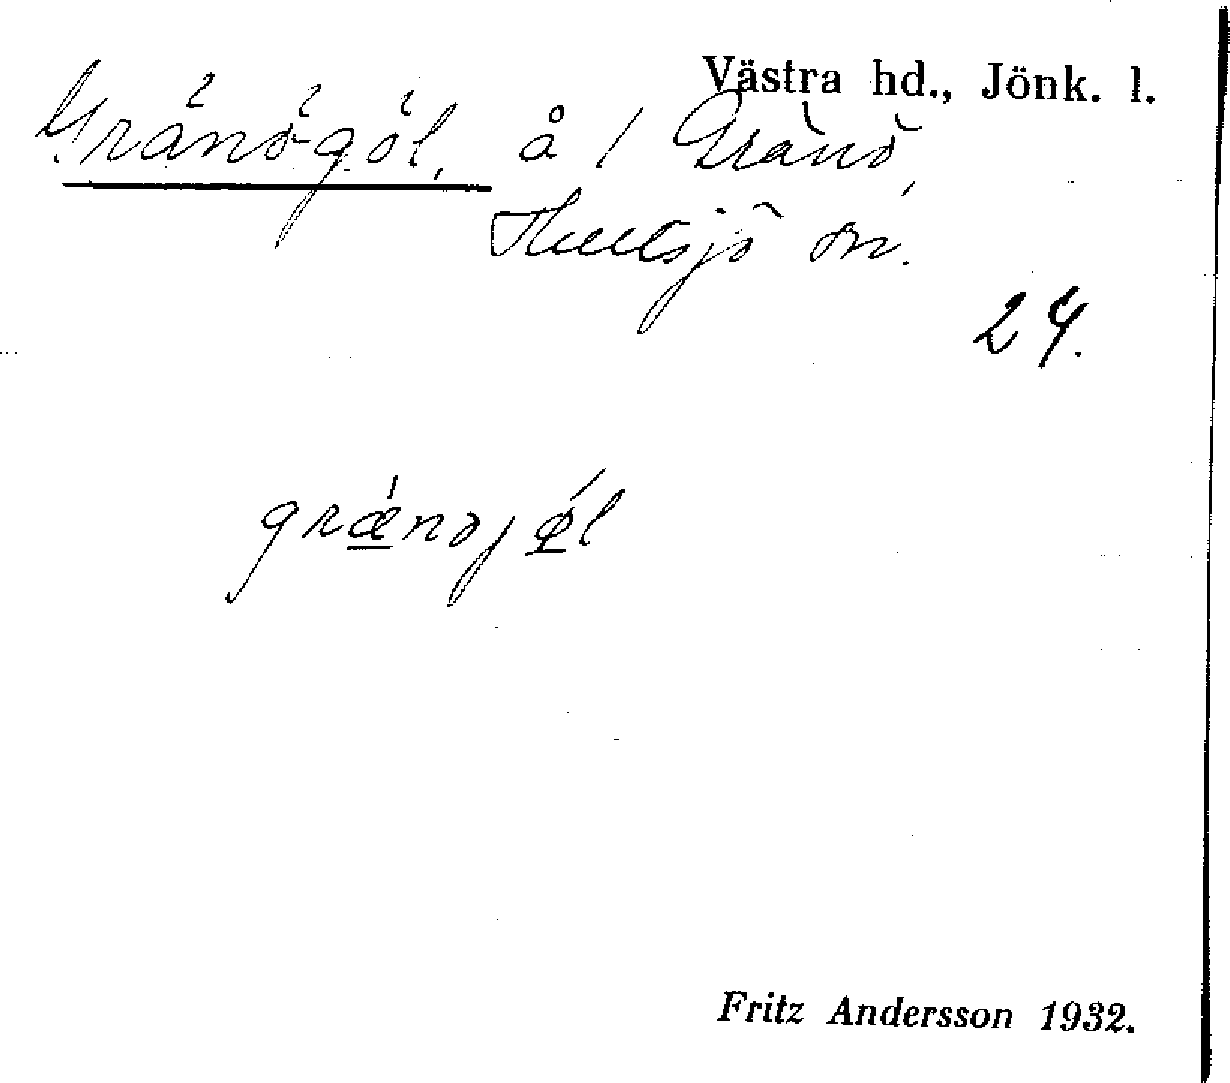 Västra hd., Jönk. l.
Gränö-göl, å / Gränö,
Hultsjö sn.
24.
grǽnojǿl
Fritz Andersson 1932.